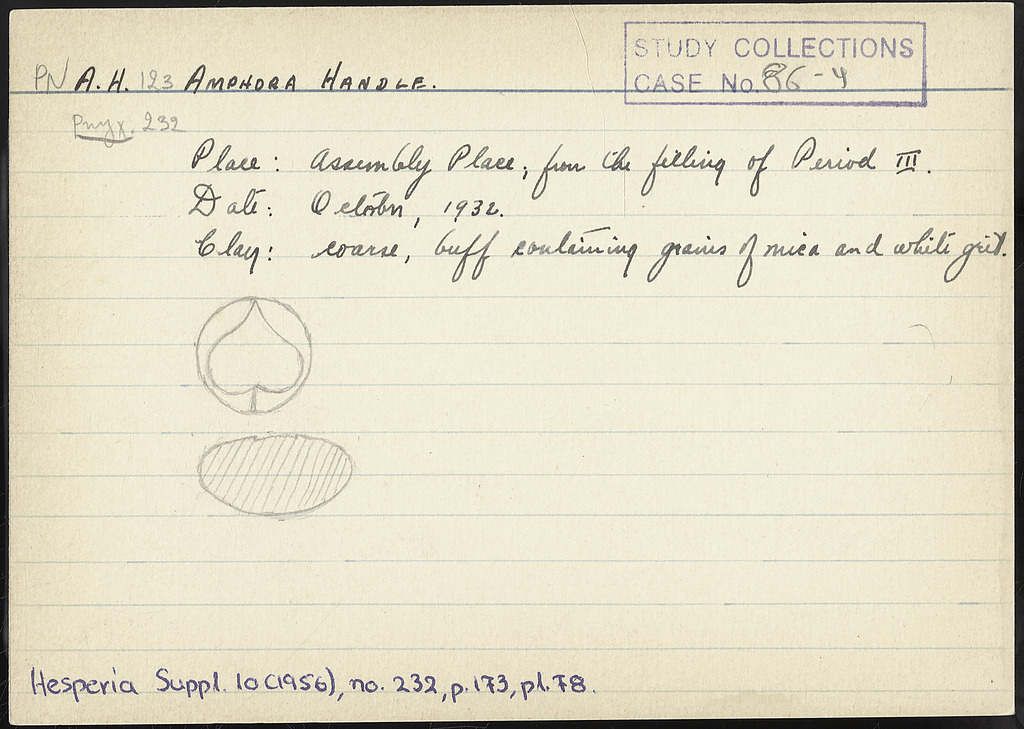 STUDY COLLECTIONS
CASE No. 86-4
PN A.H. 123 AMPHORA HANDLE.
Pnyx, 232
Place: Assembly Place, from the filling of Period III.
Date: October, 1932.
Clay: coarse, buff containing grains of mica and white grit.
Hesperia Suppl. 10 (1956), no. 232, p. 173, pl. 78.